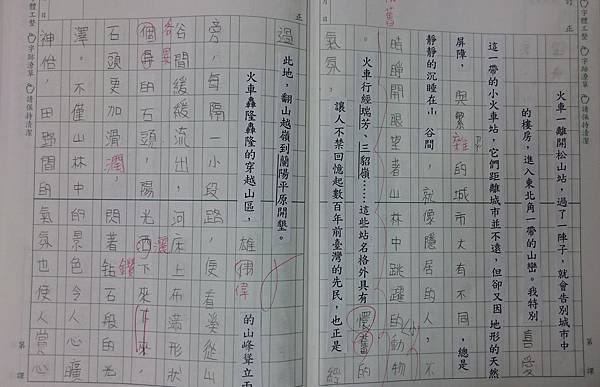 訂正
火車一離開松山站，過了一陣子，就會告別城市中
的樓房，進入東北角一帶的山巒。我特別喜愛
這一帶的小火車站，它們距離城市並不遠，但卻又因地形的天然
屏障，與繁雜的城市大有不同，總是
靜靜的沉睡在山谷間，就像隱居的人，不
時睜開眼望著山林中跳躍的動物
。火車行經瑞芳、三貂嶺……這些站名格外具有懷舊的
舊
氣氛，讓人不禁回憶起數百年前臺灣的先民，也正是經
月 日
過此地，翻山越嶺到蘭陽平原開墾。
火車轟隆轟隆的穿越山區，雄偉的山峰聳立兩
旁，每隔一小段路，便看從山
谷間緩緩流出，河床上布滿形狀
各異
灑
個異的石頭，陽光洒下來
石頭更加滑潤，閃著鑽石般的光
鑽
澤。不僅山林中的景色令人心曠
神怡，田野間的氣氛也使人賞心
字體工整 字跡潦草 請保持清潔
字體工整 字跡潦草 請保持清潔
第 課
第 課